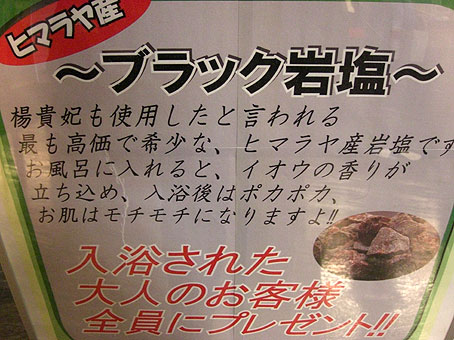 ヒマラヤ産
～ブラック岩塩～
楊貴妃も使用したと言われる
最も高価で希少な、ヒマラヤ産岩塩です
お風呂に入れると、イオウの香りが
立ち込め、入浴後はポカポカ、
お肌はモチモチになりますよ!!
入浴された
大人のお客様
全員にプレゼント!!